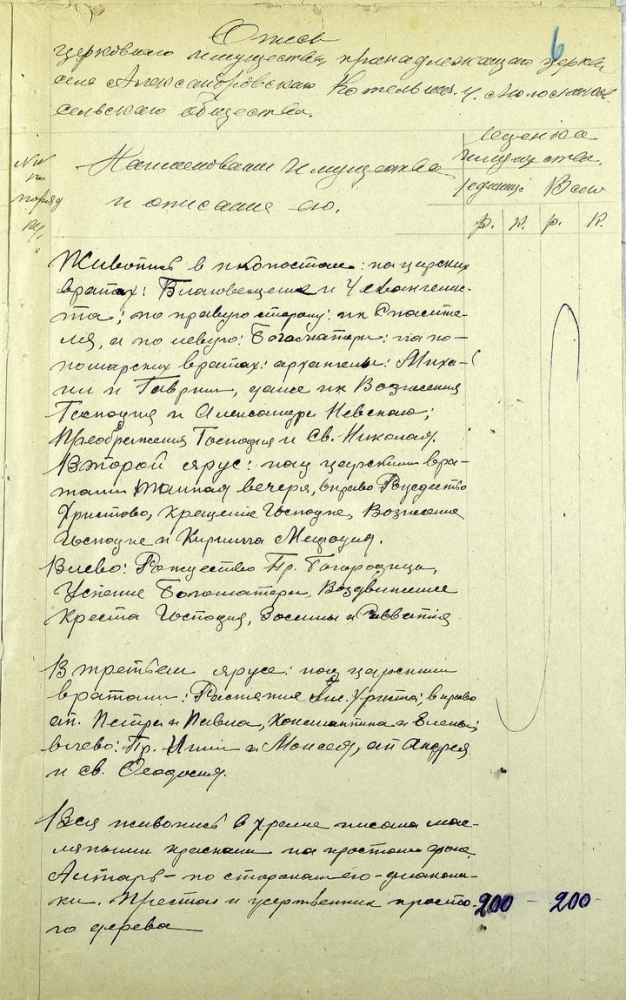 6
Опись
церковного имущества принадлежащего церкви
села Александровского Котельник. у. Молосников-
сельского общества.
№№ по поряд ку
Наименование имущества
и описание его.
Оценка
имущества.
единиц: Всего
р. к. р. к.
Живопись в иконостасе: на царских
вратах: Благовещение и 4 евангелис-
та; по правую сторону: ик Спасите-
ля, а по левую: Богоматери; на по-
номарских вратах: архангелы: Миха-
ил и Гавриил, далее ик Вознесения
Господня и Александра Невского;
Преображения Господня и Св. Николая.
Второй ярус: над царскими вра-
тами Тайная вечеря, вправо Рождество
Христово, Крещение Господне, Вознесение
Господне и Кирилла Мефодия.
Влево: Рождество Пр. Богородицы,
Успение Богоматери, Воздвижение
Креста Господня, Зосимы и Савватия
В третьем ярусе: над царскими
вратами: Распятие Христа; вправо
ап. Петра и Павла, Константина и Елены;
влево: Пр. Илии и Моисея, ап Андрея
и св. Феодосия.
Вся живопись в храме писана мас-
ляными красками на простом фоне
Алтарь - по сторонам его - диаконни-
ки. Престол и жертвенник просто-
го дерева 200 - 200 -